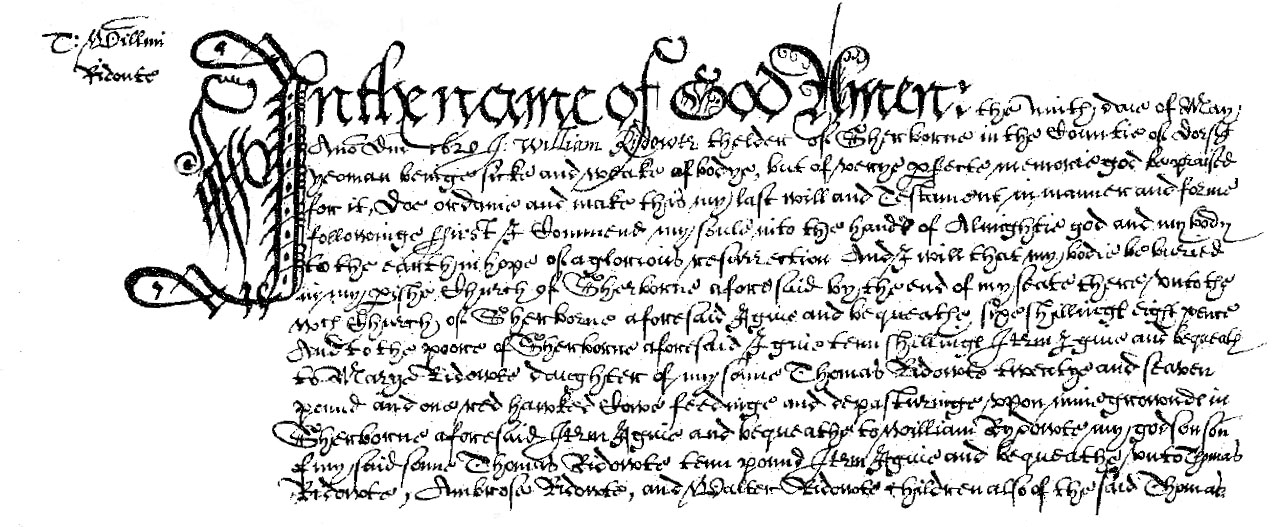 T: Willmi
Ridoute
In the name of God Amen. the ninth daie of May
Ano Dni I William Rydowte thelder of Sherborne in the Countie of Dorset
yeoman beinge sicke and weake of bodye, but of verye pfecte memorie god be praised
for it, doe ordaine and make this my last will and Testament in manner and forme
followinge ffirst I Commend my soule into the hands of Almightie god and my body
to the earth in hope of a glorious resurrection And I will that my bodie be buried
in my pishe Church of Sherborne aforesaid by the end of my seate there, vnto the
wch Church of Sherborne aforesaid I giue and bequeathe sixe shillings eight pence
And to the poore of Sherborne aforesaid I giue tenn shillings Item I giue and bequeath
to Marye Ridowte daughter of my sonne Thomas Ridowte twentye and seaven
pound and one red hawked Cowe feedinge and depasturinge vpon mine grownde in
Sherborne aforesaid Item I giue and bequeathe to William Rydowte my godson son
of my said sonne Thomas Ridowte tenn pound Item I giue and bequeathe vnto Thomas
Ridowte, Ambrose Ridowte, and Walter Ridowte children also of the said Thomas